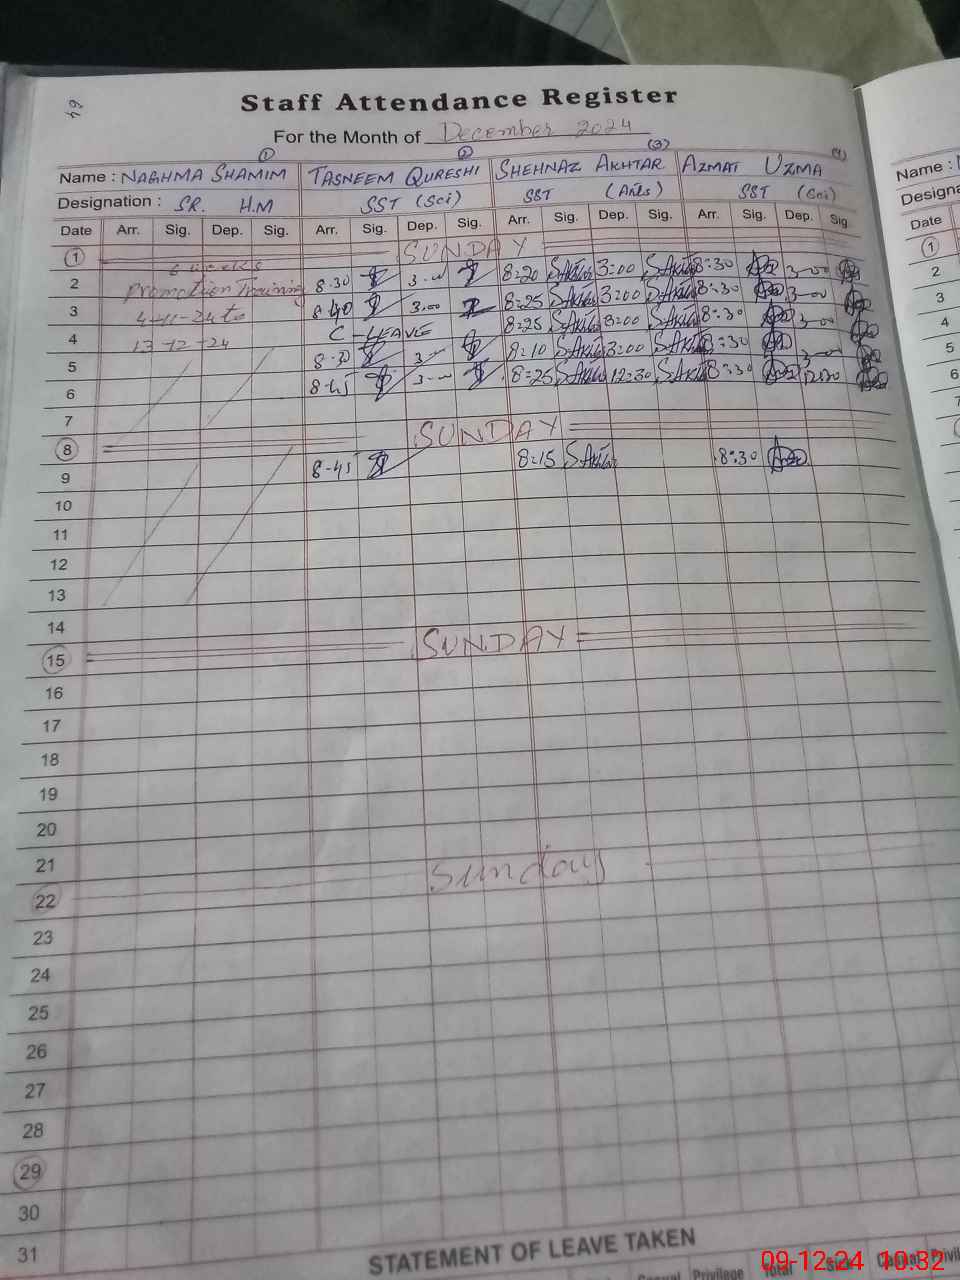 64
Staff Attendance Register
For the Month of December 2024
(1) (2) (3) (4)
Name : NAGHMA SHAMIM TASNEEM QURESHI SHEHNAZ AKHTAR AZMAT UZMA Name :
Designation : SR. H.M SST (Sci) SST (Arts) SST (Sci) Designa
Date Arr. Sig. Dep. Sig. Arr. Sig. Dep. Sig. Arr. Sig. Dep. Sig. Arr. Sig. Dep. Sig. Date
1 SUNDAY 1
2 6 weeks 8-30 3-00 8:20 SAkhtar 3:00 SAkhtar 8:30 3-00 2
3 Promotion Training 8-40 3.00 8:25 SAkhtar 3:00 SAkhtar 8:30 3-00 3
4 4-11-24 to C-LEAVE 8:25 SAkhtar 3:00 SAkhtar 8:30 3-00 4
5 13-12-24 3- 8:10 SAkhtar 3:00 SAkhtar 8:30 3-00 5
6 3-00 8:25 SAkhtar 12:30 SAkhtar 8:30 12:30 6
7 7
8 SUNDAY
9 8-45 8:15 SAkhtar 8:30
10
11
12
13
14
15 SUNDAY
16
17
18
19
20
21
22 Sunday
23
24
25
26
27
28
29
30
31
STATEMENT OF LEAVE TAKEN
Casual Privilege Total Sick Casual Privil
09-12-24 10:32